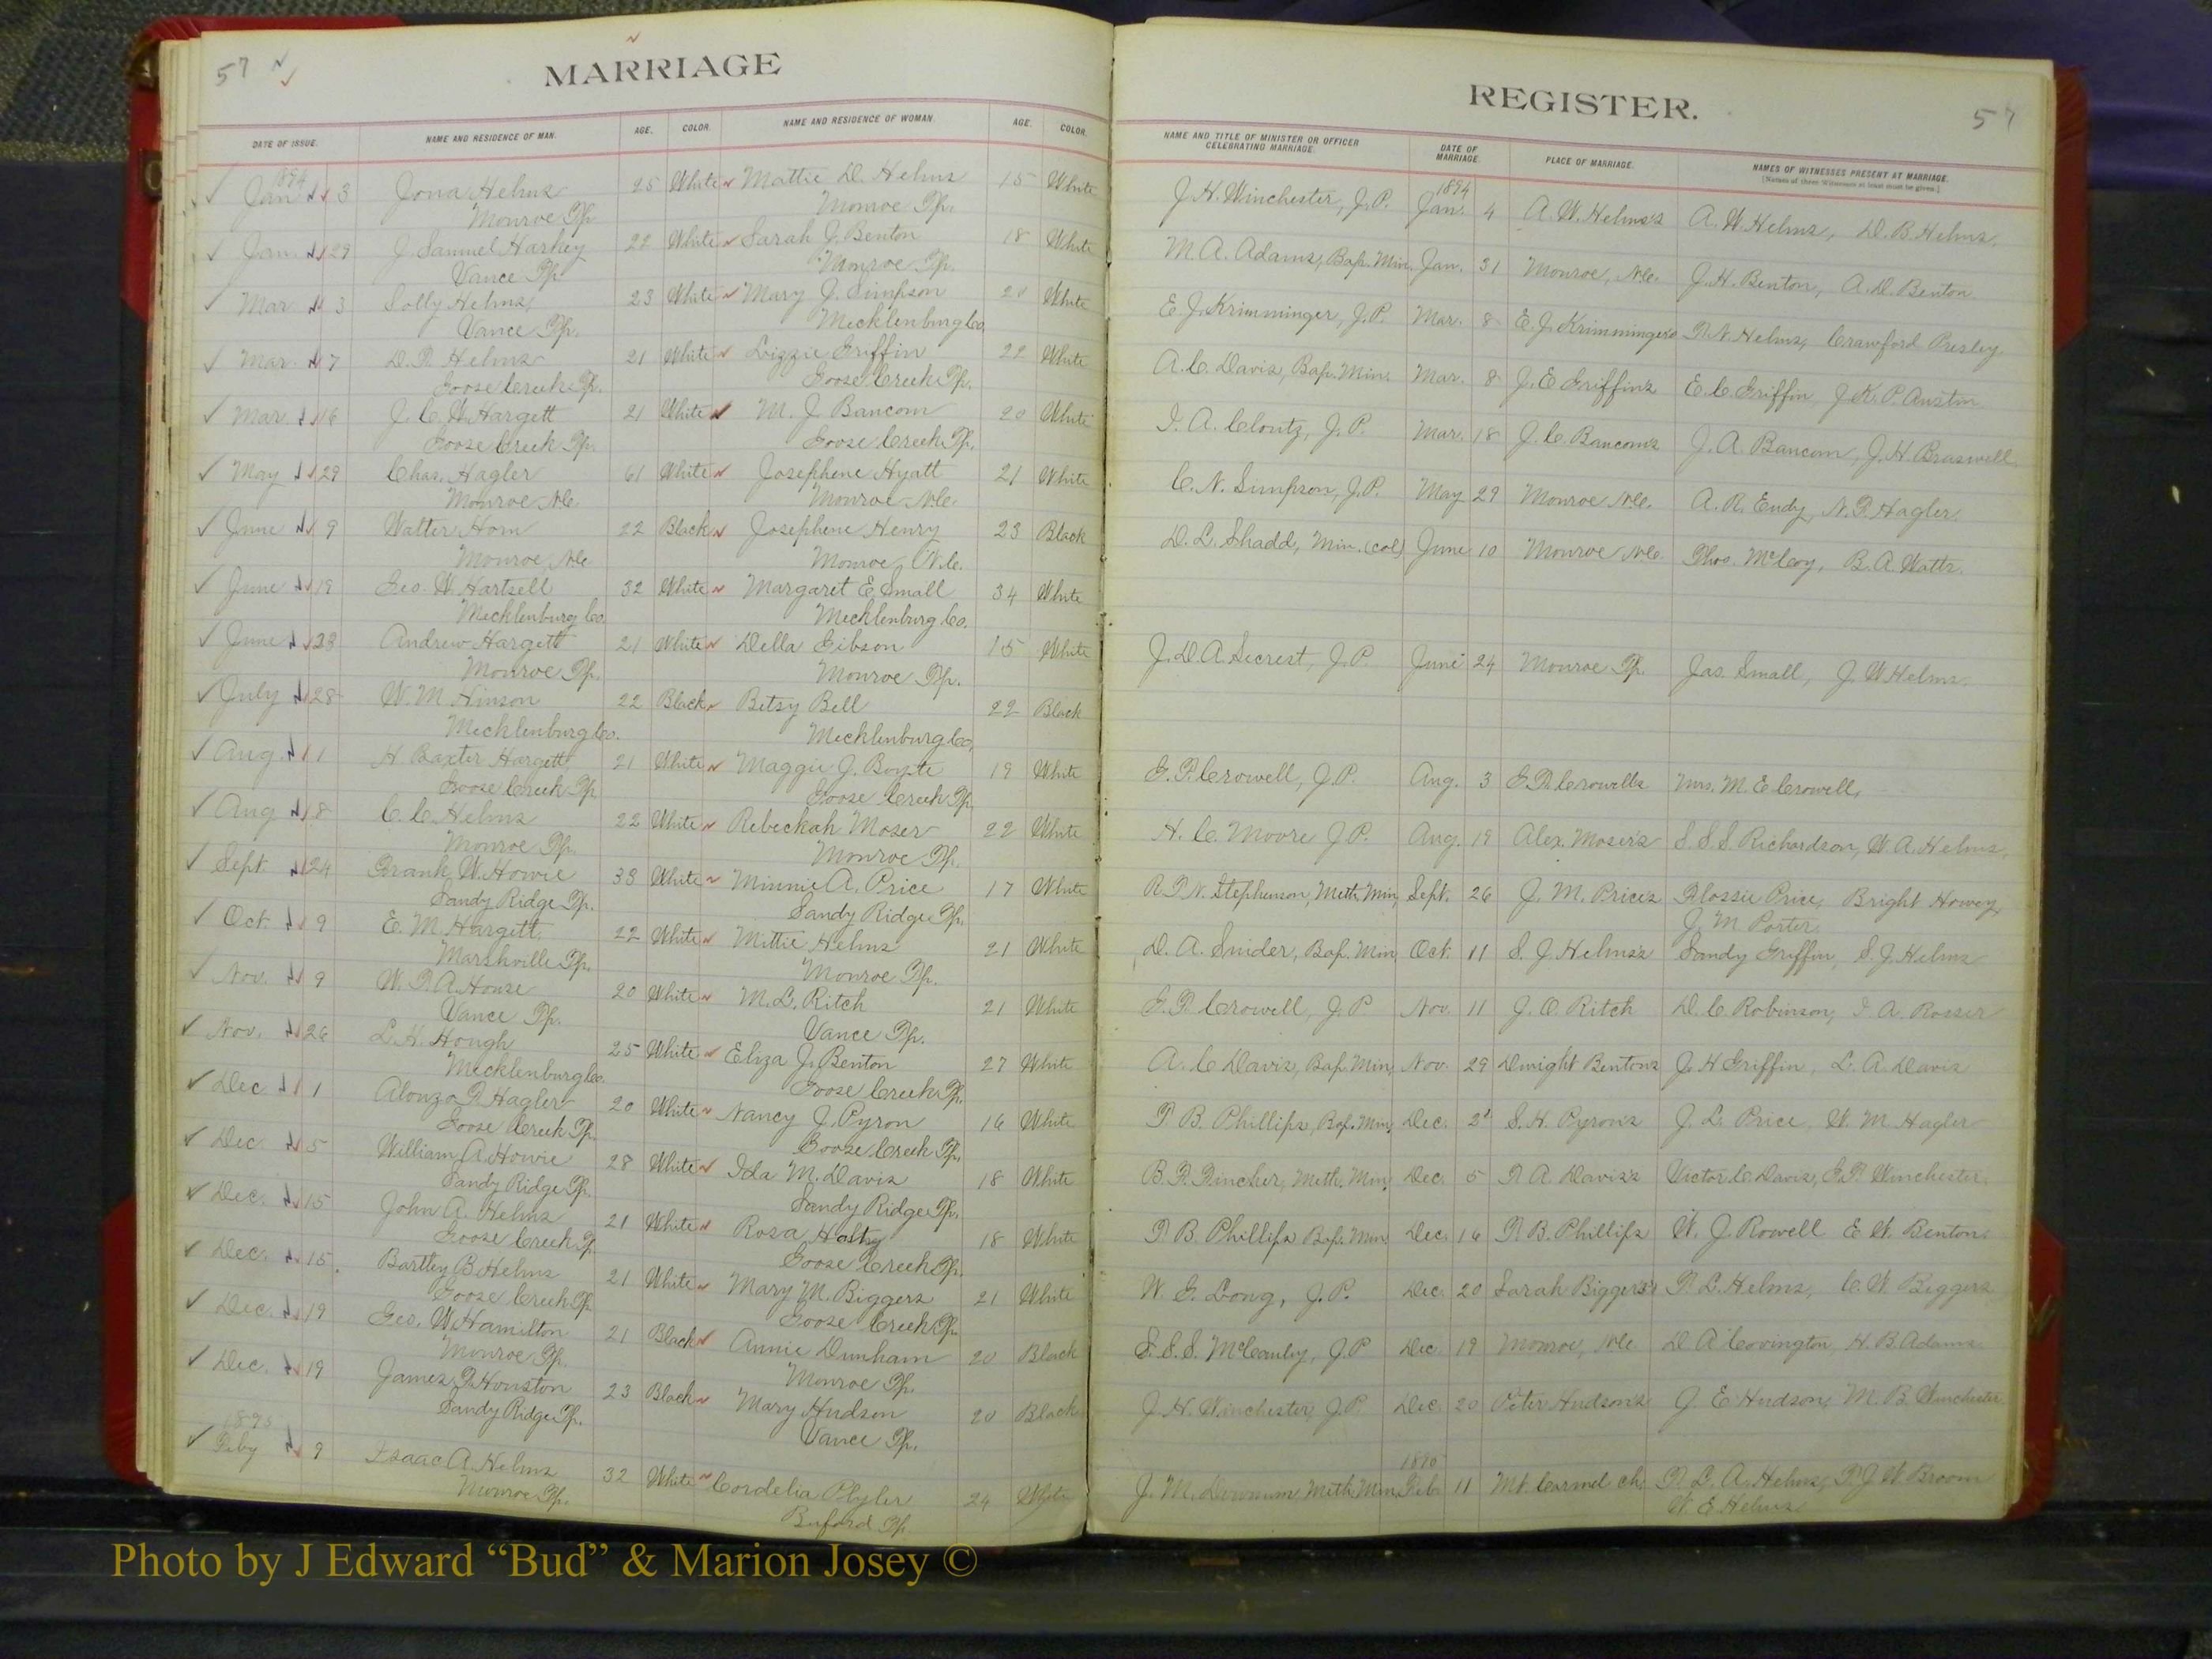 57
MARRIAGE
DATE OF ISSUE. NAME AND RESIDENCE OF MAN. AGE. COLOR. NAME AND RESIDENCE OF WOMAN. AGE. COLOR.
1894
Jan 3 Jona Helms 25 White Mattie D. Helms 15 White
Monroe Tp. Monroe Tp.
Jan. 29 J. Samuel Harkey 22 White Sarah J. Benton 18 White
Vance Tp. Monroe Tp.
Mar. 3 Solly Helms, 23 White Mary J. Simpson 20 White
Vance Tp. Mecklenburg Co.
Mar. 7 D. F. Helms 21 White Lizzie Griffin 22 White
Goose Creek Tp. Goose Creek Tp.
Mar. 16 J. C. W. Hargett 21 White M. J. Baucom 20 White
Goose Creek Tp. Goose Creek Tp.
May 29 Chas. Hagler 61 White Josephene Hyatt 21 White
Monroe N.C. Monroe N.C.
June 9 Walter Horn 22 Black Josephene Henry 23 Black
Monroe, N.C. Monroe, N.C.
June 19 Geo. W. Hartsell 32 White Margaret E. Small 34 White
Mecklenburg Co. Mecklenburg Co.
June 23 Andrew Hargett 21 White Della Gibson 15 White
Monroe Tp. Monroe Tp.
July 28 W. M. Hinson 22 Black Betsy Bell 22 Black
Mecklenburg Co. Mecklenburg Co.
Aug. 1 H. Baxter Hargett 21 White Maggie J. Boyte 19 White
Goose Creek Tp. Goose Creek Tp.
Aug 18 C. C. Helms 22 White Rebeckah Moser 22 White
Monroe Tp. Monroe Tp.
Sept 24 Frank W. Howie 33 White Minnie A. Price 17 White
Sandy Ridge Tp. Sandy Ridge Tp.
Oct. 9 E. M. Hargett. 22 White Mittie Helms 21 White
Marshville Tp. Monroe Tp.
Nov. 9 W. F. A. House 20 White M. L. Ritch 21 White
Vance Tp. Vance Tp.
Nov. 26 L. H. Hough 25 White Eliza J. Benton 27 White
Mecklenburg Co. Goose Creek Tp.
Dec 1 Alonzo F. Hagler 20 White Nancy J. Pyron 16 White
Goose Creek Tp. Goose Creek Tp.
Dec. 5 William A. Howie 28 White Ida M. Davis 18 White
Sandy Ridge Tp. Sandy Ridge Tp.
Dec. 15 John A. Helms 21 White Rosa 18 White
Goose Creek Tp. Goose Creek Tp.
Dec. 15. Bartley B. Helms 21 White Mary M. Biggers 21 White
Goose Creek Tp. Goose Creek Tp.
Dec. 19 Geo. W. Hamilton 21 Black Annie Dunham 20 Black
Monroe Tp. Monroe Tp.
Dec. 19 James F. Houston 23 Black Mary Hudson 20 Black
Sandy Ridge Tp. Vance Tp.
1895
Feby 9 Isaac A. Helms 32 White Cordelia Plyler 24 White
Monroe Tp. Buford Tp.
REGISTER.
57
NAME AND TITLE OF MINISTER OR OFFICER CELEBRATING MARRIAGE. DATE OF MARRIAGE. PLACE OF MARRIAGE. NAMES OF WITNESSES PRESENT AT MARRIAGE.
[Names of three Witnesses at least must be given.]
1894
J. H. Winchester, J.P. Jan. 4 A. W. Helms's A. W. Helms, D. B. Helms,
M. A. Adams, Bap. Min. Jan. 31 Monroe, N.C. J. H. Benton, A. D. Benton.
E. J. Krimminger, J.P. Mar. 8 E. J. Krimmingers F. N. Helms, Crawford Presley,
A. C. Davis, Bap. Min. Mar. 8 J. E Griffins E. C. Griffin J. K. P. Austin
I. A. Clontz, J.P. Mar. 18 J. C. Baucom's J. A. Baucom, J. H. Braswell.
C. N. Simpson, J.P. May 29 Monroe N.C. A. R. Eudy, N. F. Hagler.
D. L. Shadd, Min. (col) June 10 Monroe N.C. Thos. McCoy, B. A. Watts.
J. D. A. Secrest, J.P June 24 Monroe Tp. Jas. Small, J. W Helms.
G. F. Crowell, J.P. Aug. 3 G. F. Crowells Mrs. M. E Crowell,
H. C. Moore J.P. Aug. 19 Alex. Moser's S. S. S. Richardson, W. A. Helms,
R. P. N. Stephenson, Meth. Min, Sept. 26 J. M. Price's Flossie Price, Bright Howey,
J. M. Porter.
D. A. Snider, Bap. Min, Oct. 11 S. J. Helms's Sandy Griffin, S. J. Helms
G. F. Crowell, J.P Nov. 11 J. O Ritch D. C Robinson, I. A. Rosser
A. C Davis, Bap. Min, Nov. 29 Dwight Bentons J. H Griffin, L. A. Davis
P. B. Phillips, Bap. Min, Dec. 2d S. H. Pyron's J. L. Price, W. M. Hagler
B. F. Fincher, Meth. Min, Dec. 5 F. A. Davis's Victor C. Davis, G. F. Winchester.
P. B. Phillips Bap. Min Dec. 16 P. B. Phillips W. J. Rowell E. W. Benton.
W. G. Long, J.P. Dec. 20 Sarah Biggers's F. L. Helms, C. W. Biggers
S. S. S. McCauley, J.P Dec. 19 Monroe, N.C. D. A Covington, H. B. Adams.
J. H. Winchester, J.P. Dec. 20 Peter Hudson's J. E Hudson, M. B. Winchester
J. M. Downum Meth. Min. Feb. 11 Mt. Carmel Ch. F. L. A. Helms, F. J. W. Broom
W. E. Helms
Photo by J Edward “Bud” & Marion Josey ©